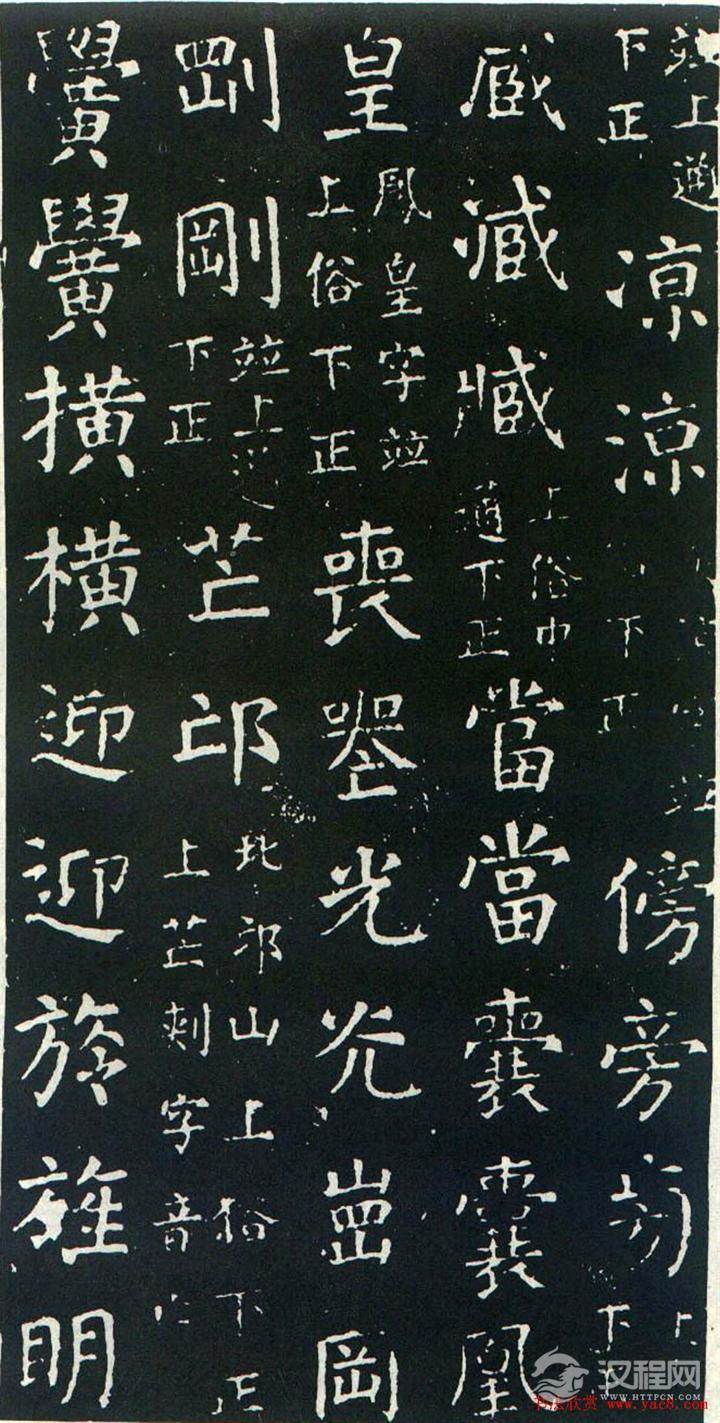 並上通下正凉涼下正傍旁下
臧上俗中通下正當當囊囊凰
皇鳳皇字並上俗下正喪光灮崗岡
剛並上通下正芒邙北邙山上俗下正上芒刺字音
黌黌撗橫迎迎旍旌明
汉程网
WWW.HTTPCN.COM
书法欣赏 www.yac8.com